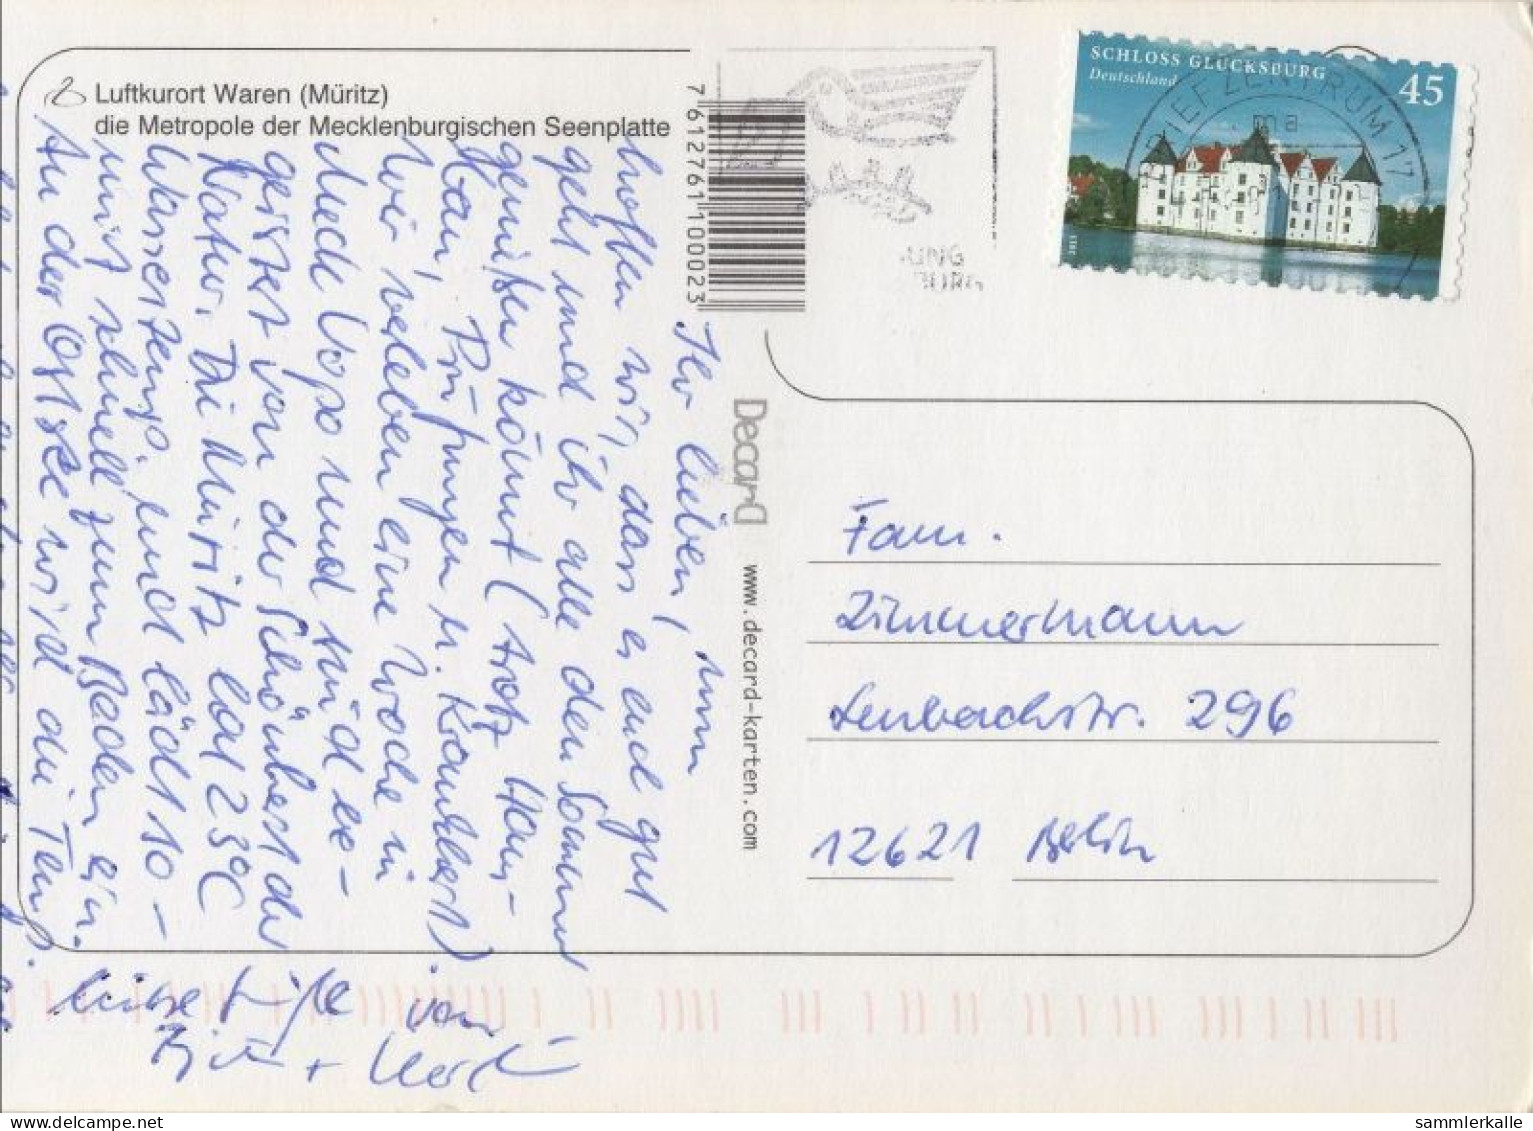 Luftkurort Waren (Müritz)
die Metropole der Mecklenburgischen Seenplatte
7 612761 100023
SCHLOSS GLÜCKSBURG
Deutschland
45
BRIEFZENTRUM 17
ma
Decard
www.decard-karten.com
Ihr Lieben, nun
hoffen wir, dass es euch gut
geht und ihr alle den Sommer
genießen könnt (trotz
Prüfungen u. Krankheit).
Wir verleben eine Woche in
Meck Vopo und sind be-
geistert von der Schönheit der
Natur. Die Müritz hat 23°C
und lädt so-
mit schnell zum Baden ein.
An der Ostsee wird die
Liebe Grüße von
Fam.
Zimmermann
Lenbachstr. 296
12621 Berlin
sammlerkalle